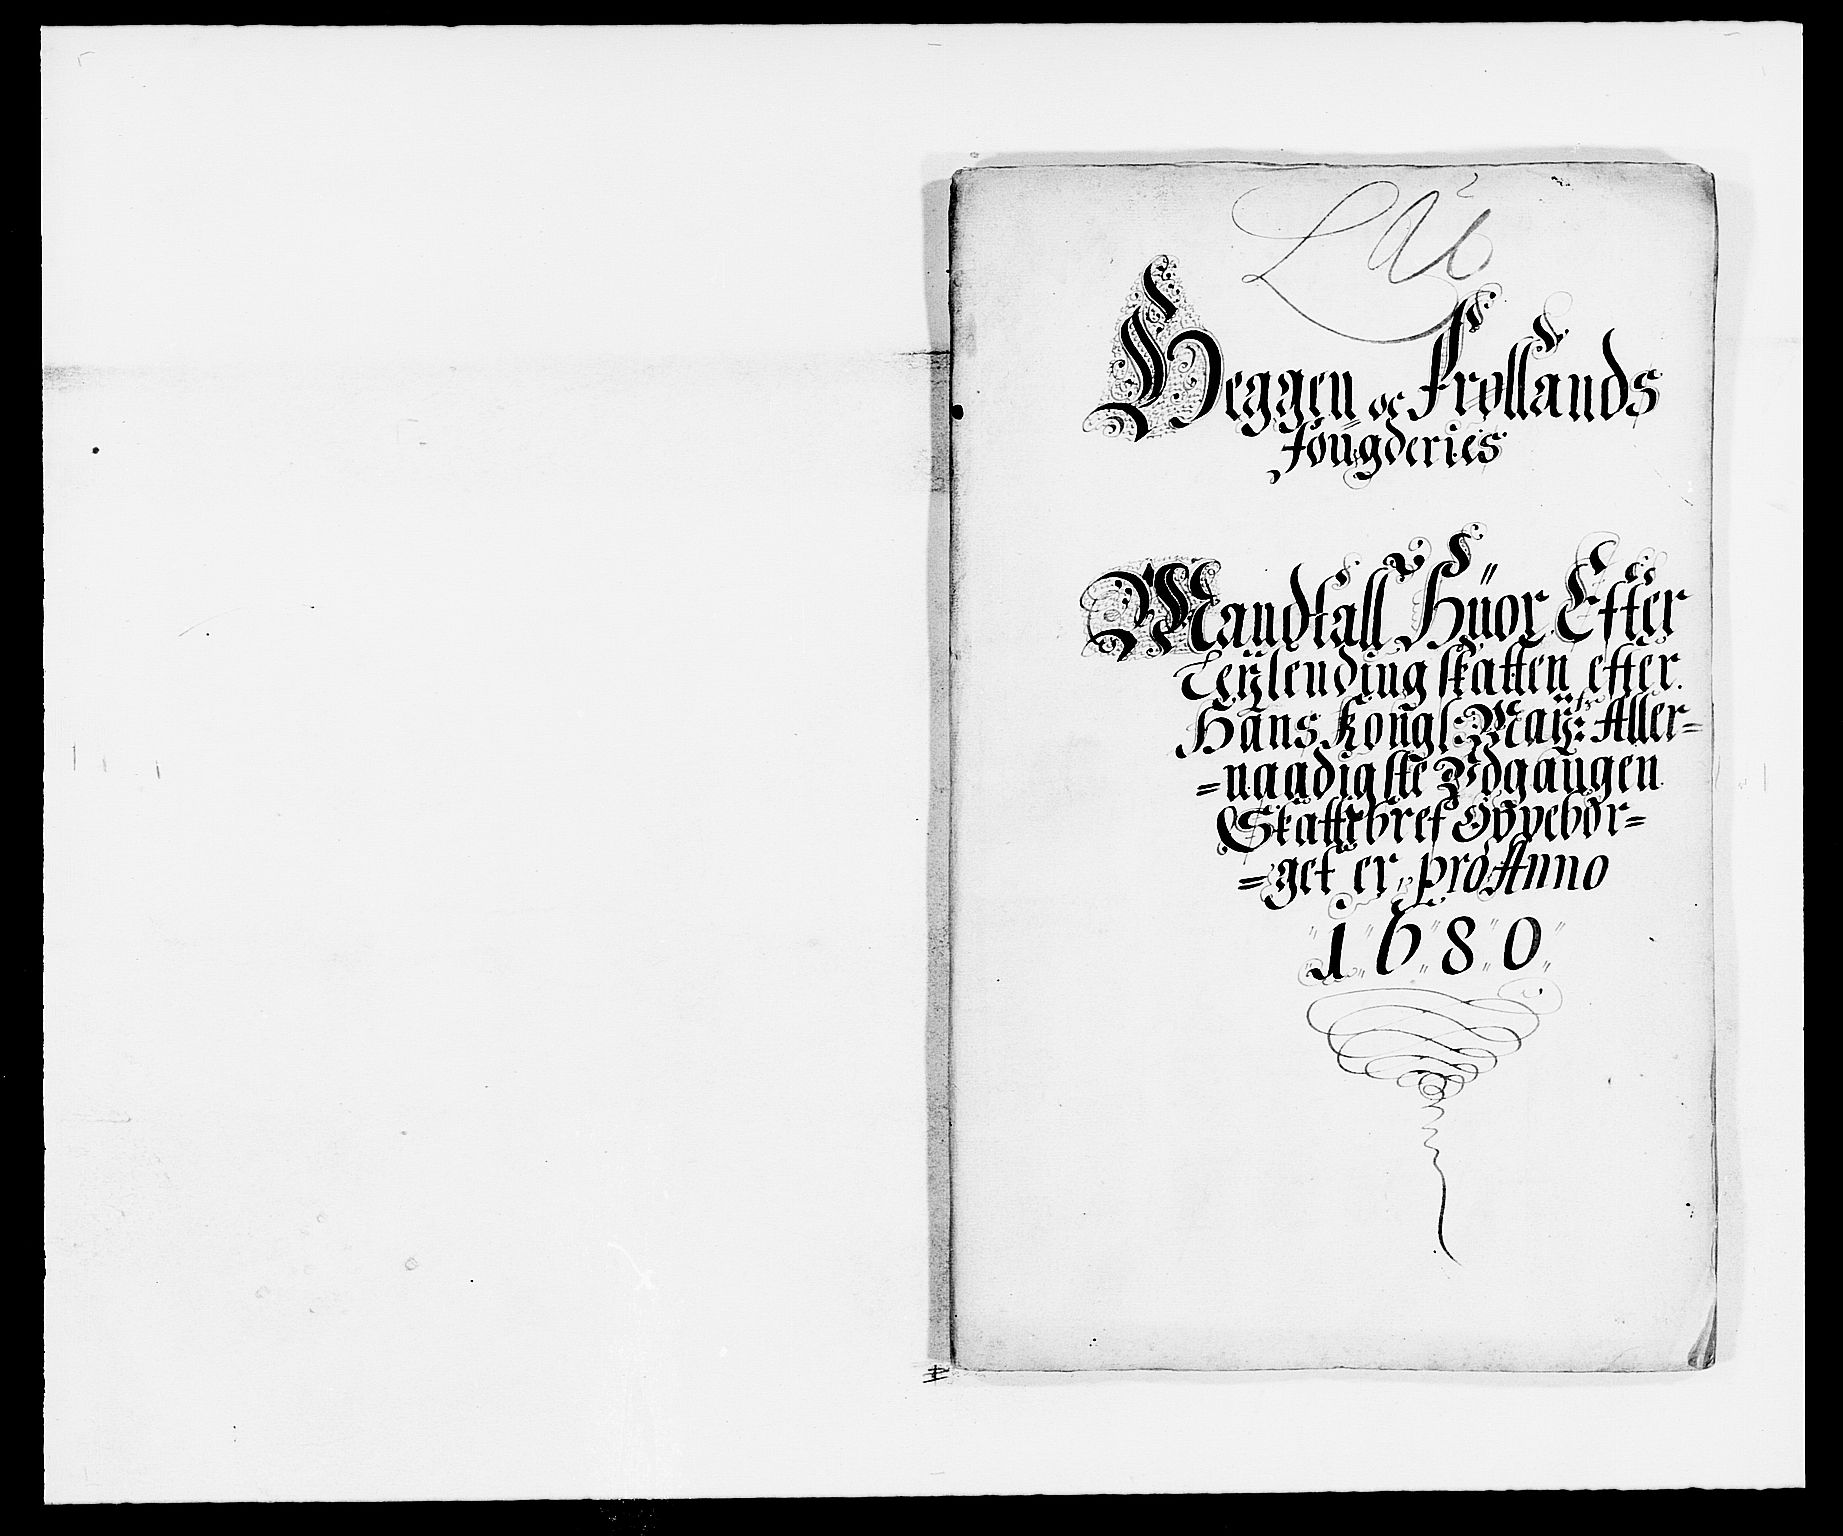 Heggen oc Frøllands
fougderies
Mandtall Huor Efter
Leÿlending skatten efter
Hans Kongl: Maÿ:ts Aller=
=naadigste Udgangen
Skattebref Oppebør=
=get er, pro Anno
1680